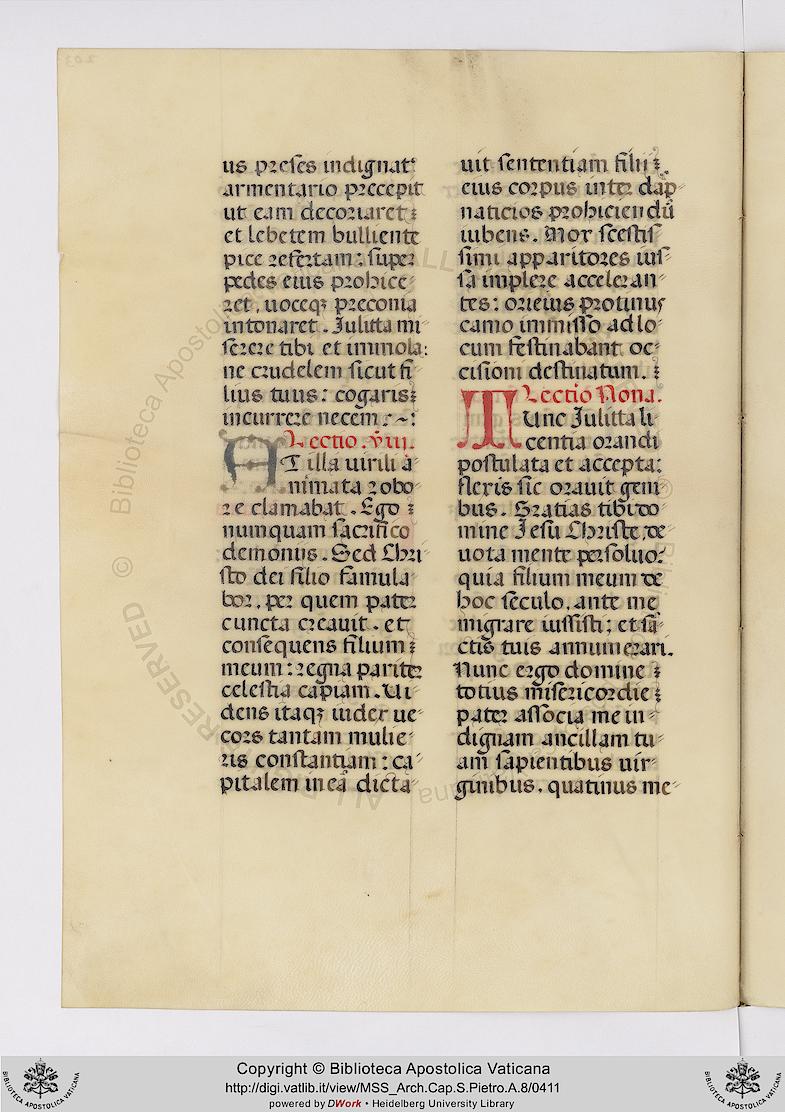 us preses indignat᷒
armentario precepit
ut eam decoriaret:
et lebetem bulliente
pice refertam: super
pedes eius proiice-
ret, uoceqȝ preconia
intonaret. Iulitta mi-
serere tibi et immola:
ne crudelem sicut fi-
lius tuus: cogaris:
incurrere necem:~:
Lectio. viii.
AT illa uirili a-
nimata robo-
re clamabat. Ego:
numquam sacrifico
demoniis. Sed Chri-
sto dei filio famula-
bor, per quem pater
cuncta creauit. et
consequens filium:
meum: regna pariter
celestia capiam. Ui-
dens itaqȝ iudex ue-
cors tantam mulie-
ris constantiam: ca-
pitalem in eā dicta-
uit sententiam filii:
eius corpus inter dāp-
naticios proiiciendū
iubens. Mox scelis-
simi apparitores ius-
sa implere acceleran-
tes: ori eius protinus
camo immisso ad lo-
cum festinabant oc-
cisioni destinatum.:
Lectio Nona.
TUnc Iulitta li-
centia orandi
postulata et accepta:
flexis sic orauit geni-
bus. Gratias tibi do-
mine Iesu Christe, de-
uota mente persoluo:
quia filium meum de
hoc seculo, ante me
migrare iussisti; et sā-
ctis tuis annumerari.
Nunc ergo domine:
totius misericordie:
pater associa me in-
dignam ancillam tu-
am sapientibus uir-
ginibus, quatinus me-
Copyright © Biblioteca Apostolica Vaticana
http://digi.vatlib.it/view/MSS_Arch.Cap.S.Pietro.A.8/0411
powered by DWork • Heidelberg University Library